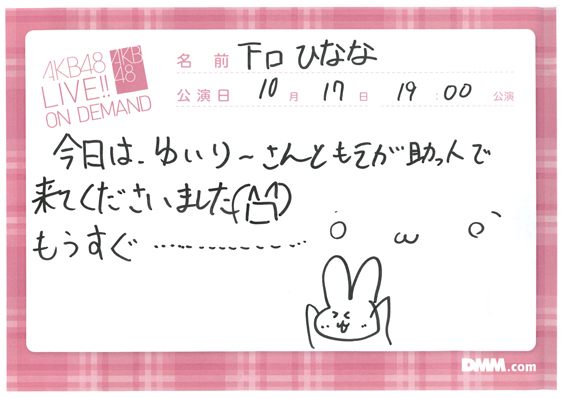 AKB48
LIVE!!
ON DEMAND
AKB
48
名前 下口ひなな
公演日 10月 17日 19:00 公演
今日は、ゆいり〜さんともえが助っ人で
来てくださいました
もうすぐ……………………
DMM.com